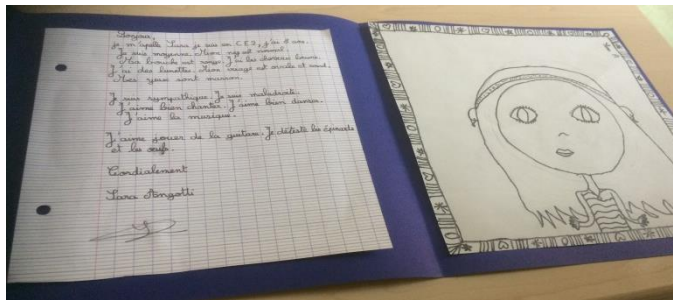 Bonjour,
je m'apelle Sara je suis en CE2, j'ai 8 ans.
Je suis moyenne. Mon nez est normal.
Ma bouche est rouge. J'ai les cheveux bruns.
J'ai des lunettes. Mon visage est ovale et rond.
Mes yeux sont marron.
Je suis sympathique. Je suis maladroite.
J'aime bien chanter. J'aime bien danser.
J'aime la musique.
J'aime jouer de la guitare. Je déteste les épinards
et les oeufs.
Cordialement
Sara Angotti